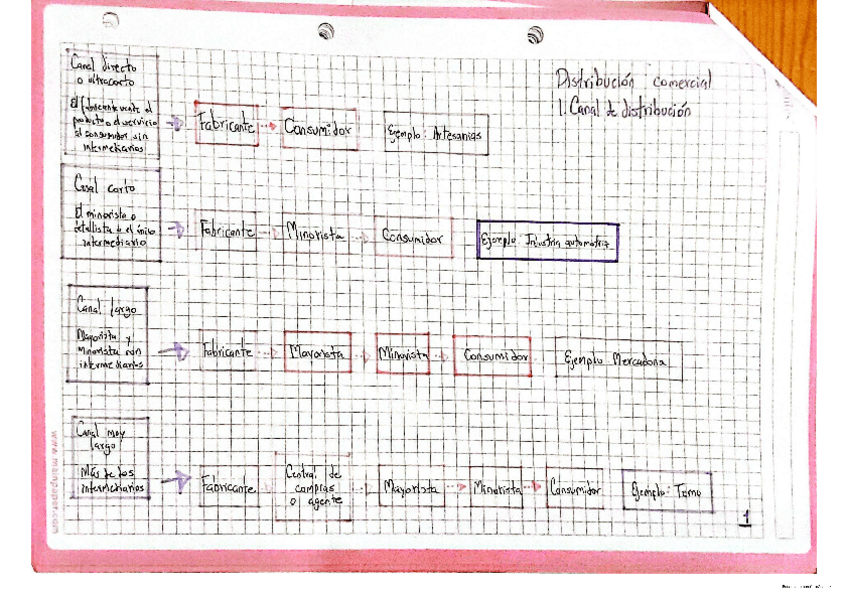 Distribución comercial
1. Canal de distribución
Canal directo
o ultracorto
El fabricante vende el
producto o el servicio
al consumidor sin
intermediarios
Fabricante
Consumidor
Ejemplo: Artesanías
Canal corto
El minorista o
detallista es el único
intermediario
Fabricante
Minorista
Consumidor
Ejemplo: Industria automotriz
Canal largo
Mayorista y
minorista son
intermediarios
Fabricante
Mayorista
Minorista
Consumidor
Ejemplo Mercadona
Canal muy
largo
Más de dos
intermediarios
Fabricante
Central de
compras
o agente
Mayorista
Minorista
Consumidor
Ejemplo: Temu
1